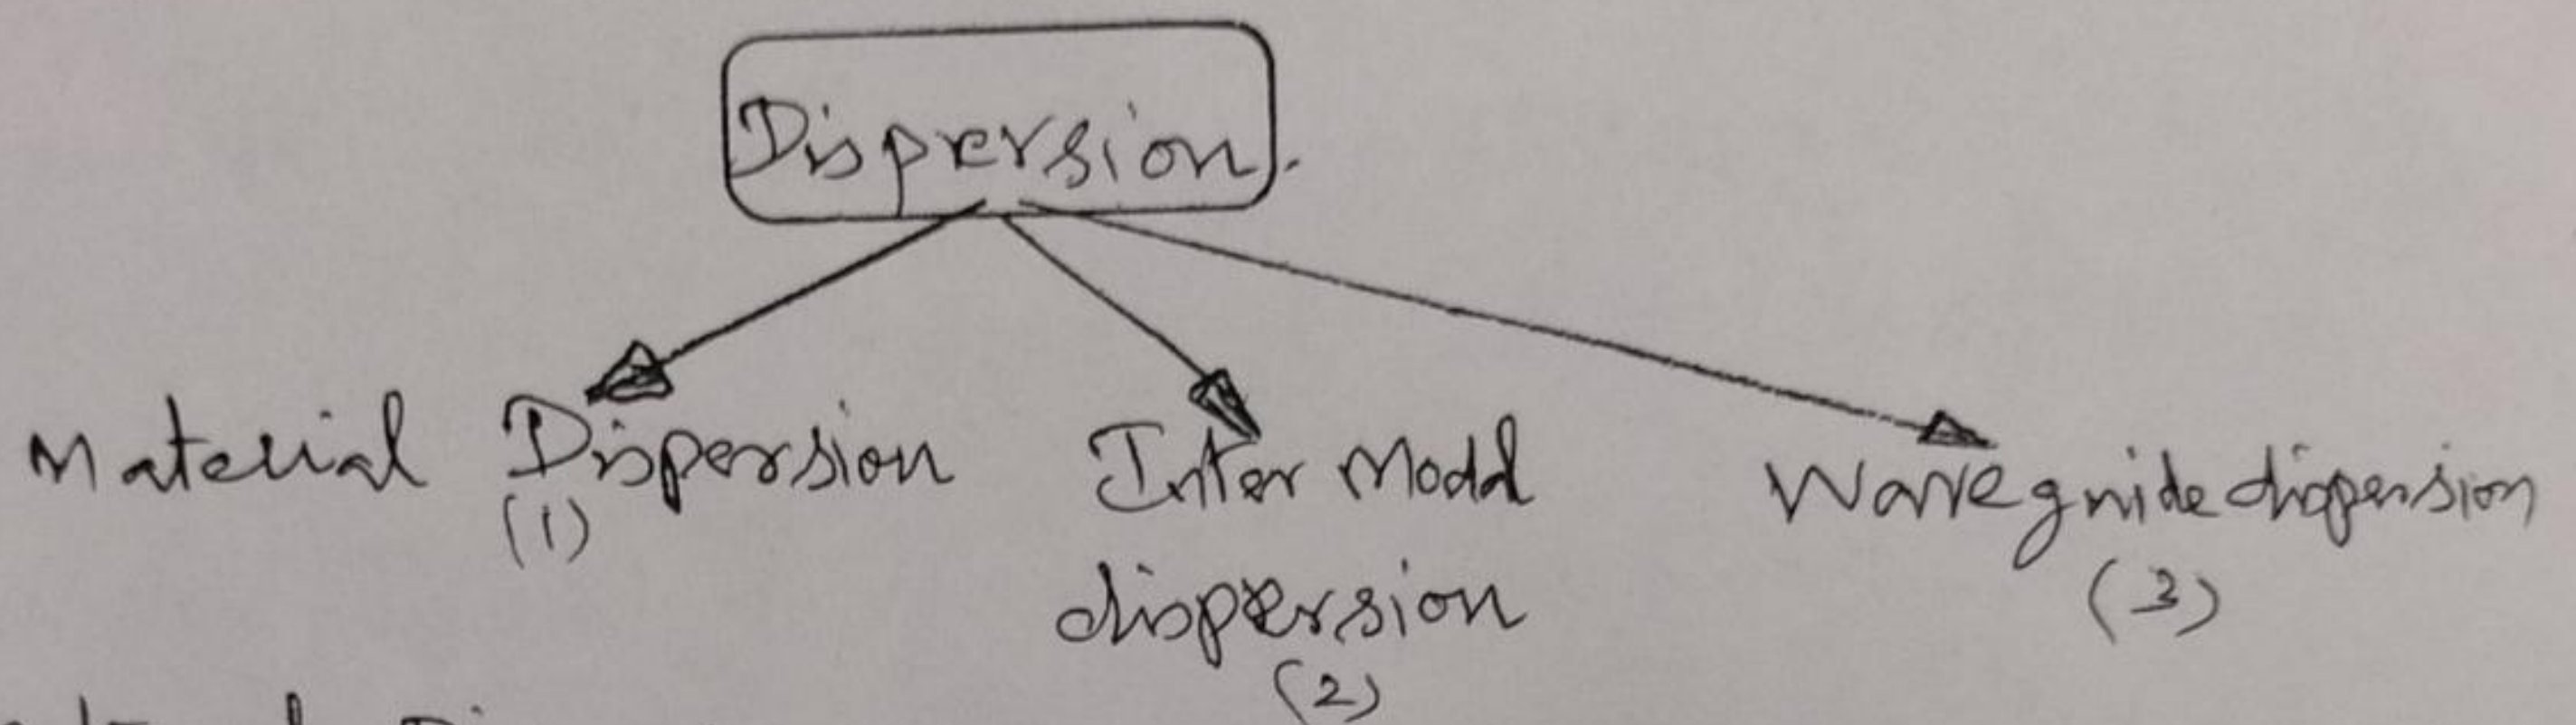 Dispersion.
Material Dispersion
(1)
Inter Modal
dispersion
(2)
Waveguide dispersion
(3)